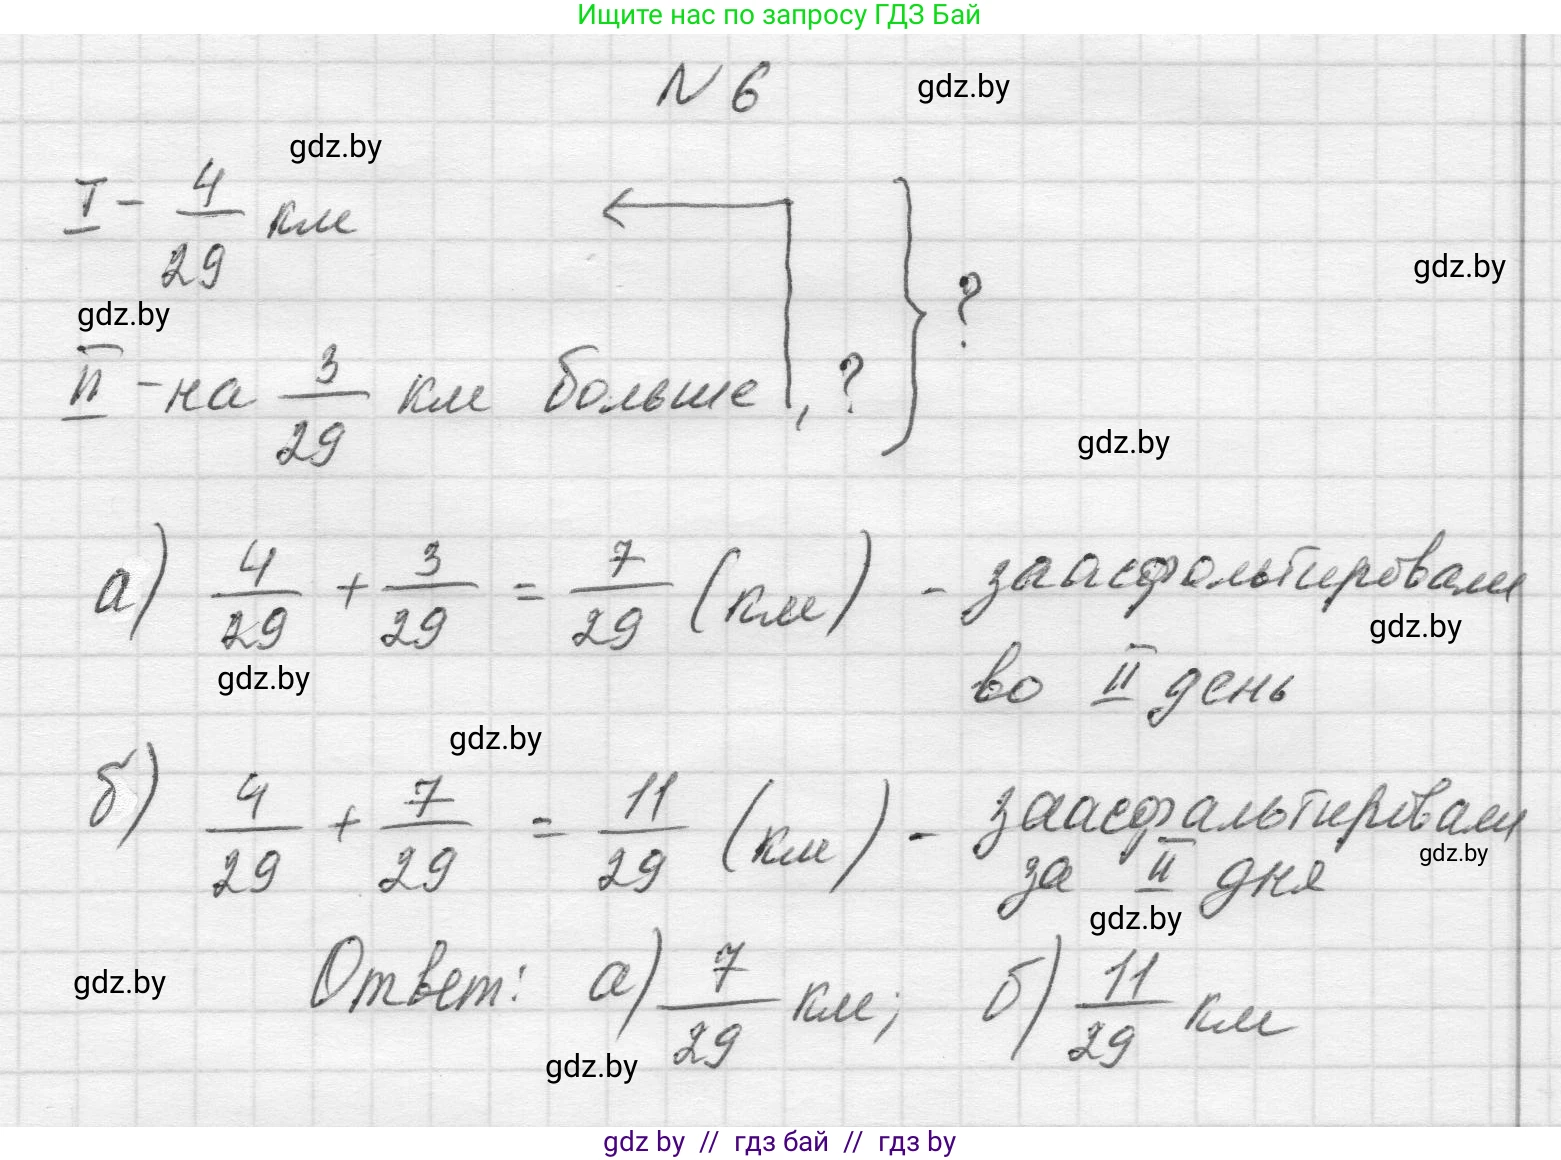 Ищите нас по запросу ГДЗ Бай
N 6
gdz.by
gdz.by
I - 4/29 км
?
gdz.by
gdz.by
II - на 3/29 км больше, ?
gdz.by
а) 4/29 + 3/29 = 7/29 (км) - заасфальтировали
gdz.by
во II день
gdz.by
gdz.by
б) 4/29 + 7/29 = 11/29 (км) - заасфальтировали
gdz.by
за II дня
gdz.by
Ответ: а) 7/29 км; б) 11/29 км
gdz.by
gdz.by
gdz by // гдз бай // гдз by